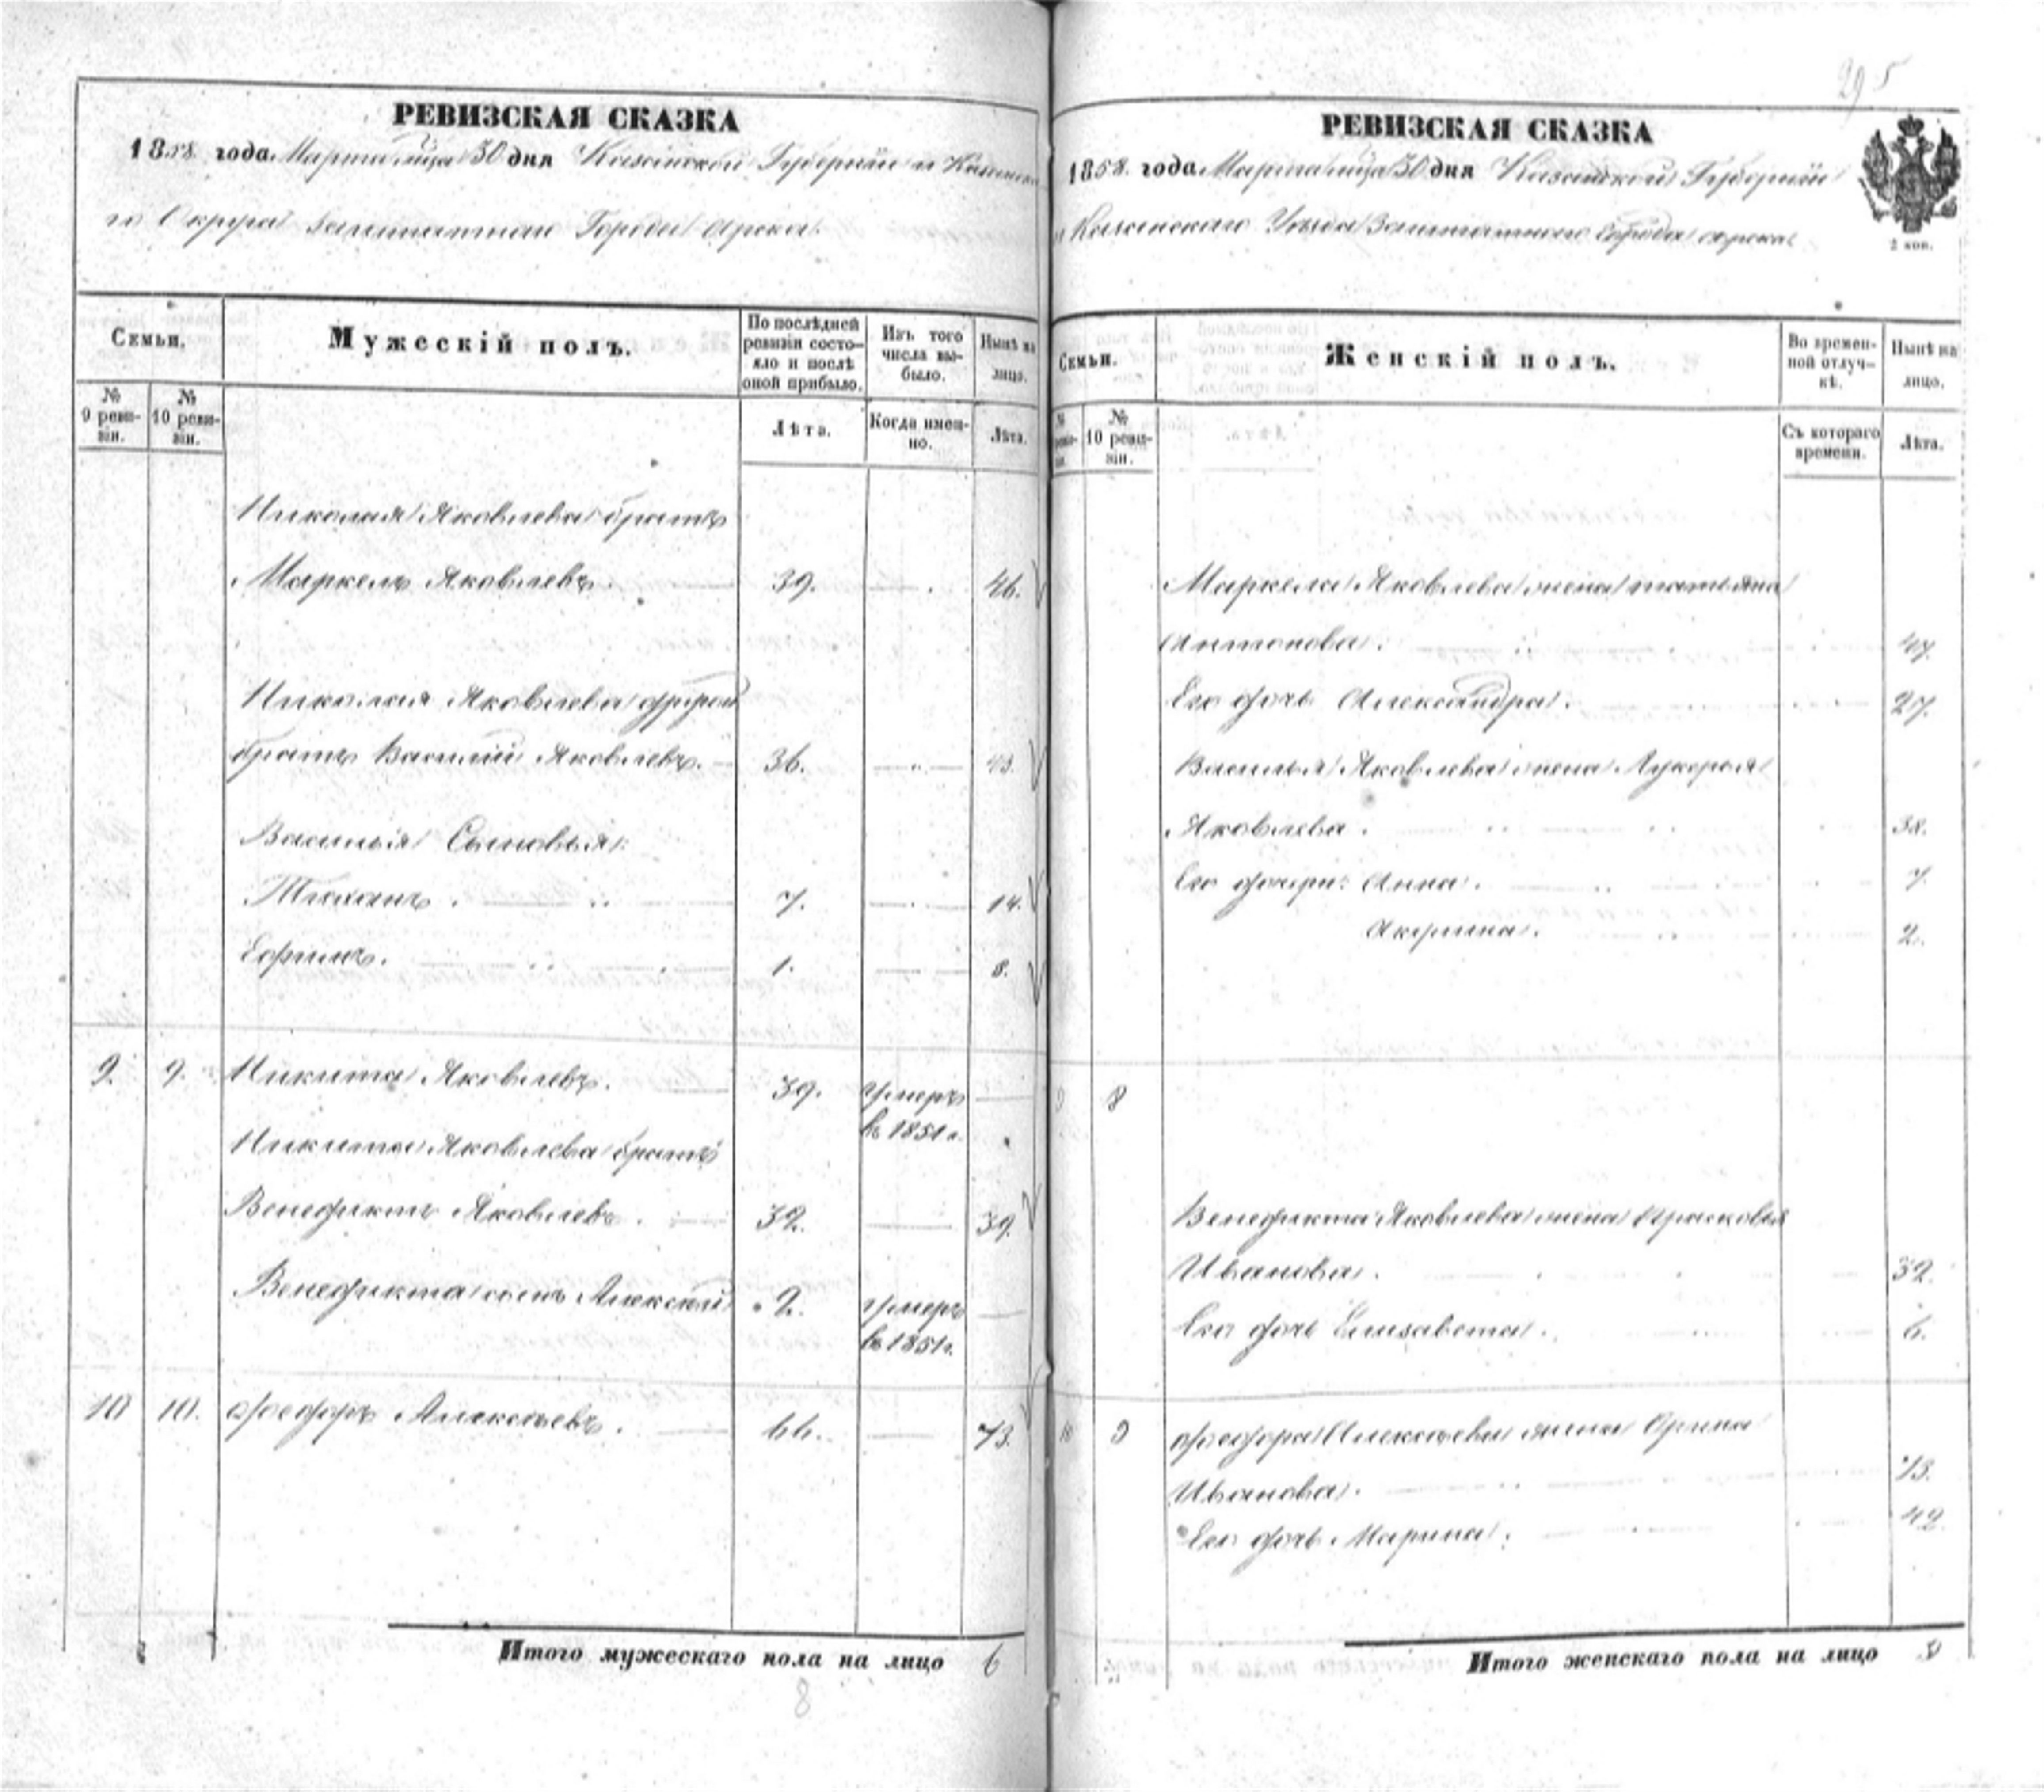 295
РЕВИЗСКАЯ СКАЗКА
1858 года Марта м̃ца 30 дня Казанской Губернии и Казанска
го Округа Заштатнаго Города Арска.
Семьи.
Мужескій полъ.
По послѣдней ревизіи состояло и послѣ оной прибыло.
Изъ того числа выбыло.
Нынѣ на лицо.
№ 9 ревизіи.
№ 10 ревизіи.
Лѣта.
Когда именно.
Лѣта.
Николая Яковлева братъ
Маркелъ Яковлевъ. 39. 46.
Николая Яковлева другой
братъ Василий Яковлевъ. 36. 43.
Василья Сыновья:
Тихонъ. 7. 14.
Ефимъ. 1. 8.
9. 9. Никита Яковлевъ. 39. умеръ
въ 1851 г.
Никиты Яковлева братъ
Венедиктъ Яковлевъ. 32. 39.
Венедикта сынъ Алексѣй 2. умеръ
въ 1851 г.
10 10. Федоръ Алексѣевъ. 66. 73.
Итого мужескаго пола на лицо 6
8
РЕВИЗСКАЯ СКАЗКА
1858 года Марта м̃ца 30 дня Казанской Губернии
и Казанскаго Уѣзда Заштатнаго города Арска
2 коп.
Семьи.
Женскій полъ.
Во временной отлучкѣ.
Нынѣ на лицо.
№ 10 ревизіи.
Съ котораго времени.
Лѣта.
Маркела Яковлева жена Татьяна
Антонова. 47.
Его дочь Александра. 27.
Василья Яковлева жена Лукерья
Яковлева. 38.
Его дочери: Анна. 7.
Акулина. 2.
9 8
Венедикта Яковлева жена Прасковья
Иванова. 32.
Его дочь Елизавета. 6.
10 9 Федора Алексѣева жена Орина
Иванова. 73.
Его дочь Марина. 42.
Итого женскаго пола на лицо 9